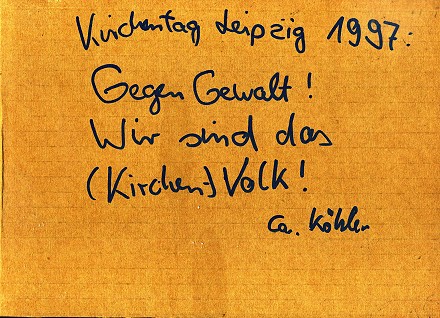 Kirchentag Leipzig 1997:
Gegen Gewalt!
Wir sind das
(Kirchen-)Volk!
Ca. Köhler